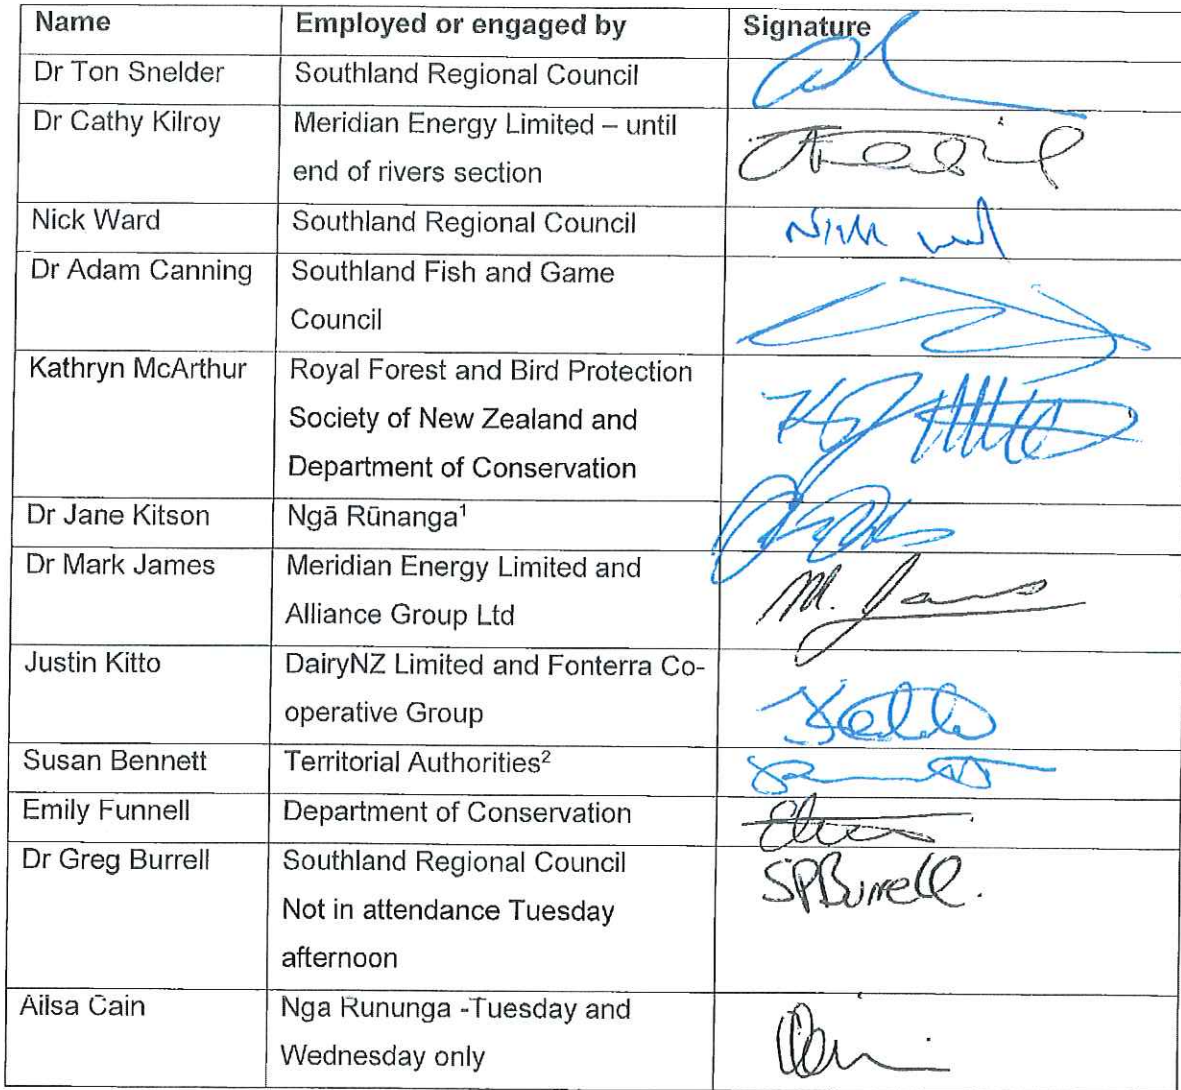 Name Employed or engaged by Signature
Dr Ton Snelder Southland Regional Council
Dr Cathy Kilroy Meridian Energy Limited – until
end of rivers section
Nick Ward Southland Regional Council
Dr Adam Canning Southland Fish and Game
Council
Kathryn McArthur Royal Forest and Bird Protection
Society of New Zealand and
Department of Conservation
Dr Jane Kitson Ngā Rūnanga¹
Dr Mark James Meridian Energy Limited and M. James
Alliance Group Ltd
Justin Kitto DairyNZ Limited and Fonterra Co-
operative Group
Susan Bennett Territorial Authorities²
Emily Funnell Department of Conservation
Dr Greg Burrell Southland Regional Council
Not in attendance Tuesday
afternoon
Ailsa Cain Nga Rununga -Tuesday and
Wednesday only